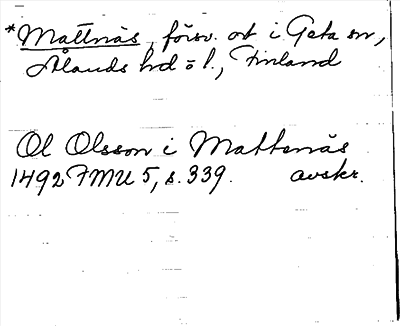 *Mattnäs, försv. ort i Geta sn,
Ålands hd o l., Finland
Ol Olsson i Mattenäs
1492 FMU 5, s. 339. avskr.